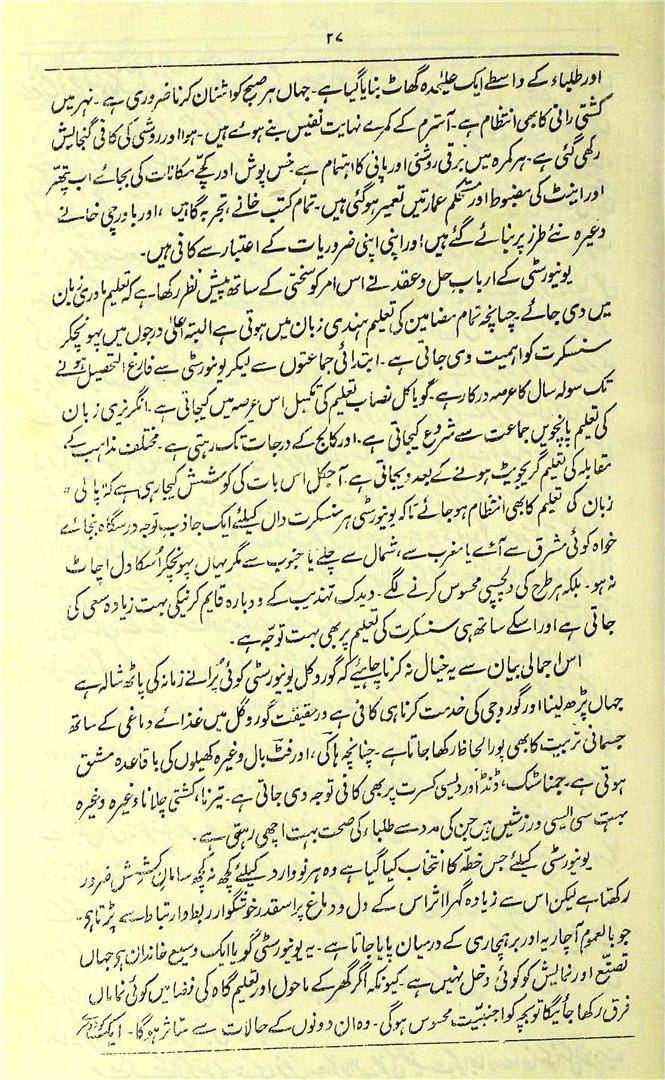 ۲۷
اور طلباء کے واسطے ایک علیحدہ گھاٹ بنایا گیا ہے۔ جہاں ہر صبح کو اشنان کرنا ضروری ہے۔ نہر میں
کشتی رانی کا بھی انتظام ہے۔ آشرم کے کمرے نہایت نفیس بنے ہوئے ہیں۔ ہوا اور روشنی کی کافی گنجایش
رکھی گئی ہے۔ ہر کمرہ میں برقی روشنی اور پانی کا اہتمام ہے خس پوش اور کچے مکانات کی بجائے اب پختہ
اور اینٹ کی مضبوط اور مستحکم عمارتیں تعمیر ہو گئی ہیں۔ تمام کتب خانے، تجربہ گاہیں، اور باورچی خانے
وغیرہ نئے طرز پر بنائے گئے ہیں اور اپنی اپنی ضروریات کے اعتبار سے کافی ہیں۔
یونیورسٹی کے ارباب حل و عقد نے اس امر کو سختی کے ساتھ پیش نظر رکھا ہے کہ تعلیم مادری زبان
میں دی جائے۔ چنانچہ تمام مضامین کی تعلیم ہندی زبان میں ہوتی ہے البتہ اعلیٰ درجوں میں پہونچکر
سنسکرت کو اہمیت دی جاتی ہے۔ ابتدائی جماعتوں سے لیکر یونیورسٹی سے فارغ التحصیل ہونے
تک سولہ سال کا عرصہ درکار ہے۔ گویا کل نصاب تعلیم کی تکمیل اس عرصہ میں کیجاتی ہے۔ انگریزی زبان
کی تعلیم پانچویں جماعت سے شروع کیجاتی ہے۔ اور کالج کے درجات تک رہتی ہے۔ مختلف مذاہب کے
مقابلہ کی تعلیم گریجویٹ ہونے کے بعد دیجاتی ہے۔ آجکل اس بات کی کوشش کیجا رہی ہے کہ "پالی"
زبان کی تعلیم کا بھی انتظام ہو جائے تاکہ یونیورسٹی ہر سنسکرت داں کیلئے ایک جاذب توجہ درسگاہ بنجائے
خواہ کوئی مشرق سے آئے یا مغرب سے، شمال سے چلے یا جنوب سے مگر یہاں پہونچکر اُسکا دل اچاٹ
نہ ہو۔ بلکہ ہر طرح کی دلچسپی محسوس کرنے لگے۔ ویدک تہذیب کے دوبارہ قایم کرنیکی بہت زیادہ سعی کی
جاتی ہے اور اسکے ساتھ ہی سنسکرت کی تعلیم پر بھی بہت توجہ ہے۔
اس اجمالی بیان سے یہ خیال نہ کرنا چاہیئے کہ گوروکل یونیورسٹی کوئی پُرانے زمانہ کی پاٹھ شالہ ہے
جہاں پڑھ لینا اور گوروجی کی خدمت کرنا ہی کافی ہے درحقیقت گوروکل میں غذائے دماغی کے ساتھ
جسمانی تربیت کا بھی پورا لحاظ رکھا جاتا ہے۔ چنانچہ ہاکی، اور فٹ بال وغیرہ کھیلوں کی باقاعدہ مشق
ہوتی ہے۔ جمناسٹک، ڈنڈ اور دیسی کسرت پر بھی کافی توجہ دی جاتی ہے۔ تیرنا، کشتی چلانا وغیرہ وغیرہ
بہت سی ایسی ورزشیں ہیں جن کی مدد سے طلباء کی صحت بہت اچھی رہتی ہے۔
یونیورسٹی کیلئے جس خطہ کا انتخاب کیا گیا ہے وہ ہر نووارد کیلئے کچھ نہ کچھ سامان کشش ضرور
رکھتا ہے لیکن اس سے زیادہ گہرا اثر اس کے دل و دماغ پر اسقدر خوشگوار ربط و ارتباط سے پڑتا ہے۔
جو بالعموم آچاریہ اور برہمچاری کے درمیان پایا جاتا ہے۔ یہ یونیورسٹی گویا ایک وسیع خاندان ہے جہاں
تصنّع اور نمایش کو کوئی دخل نہیں ہے۔ کیونکہ اگر گھر کے ماحول اور تعلیم گاہ کی فضا میں کوئی نمایاں
فرق رکھا جائیگا تو بچہ کو اجنبیت محسوس ہوگی۔ وہ ان دونوں کے حالات سے متاثر ہوگا۔